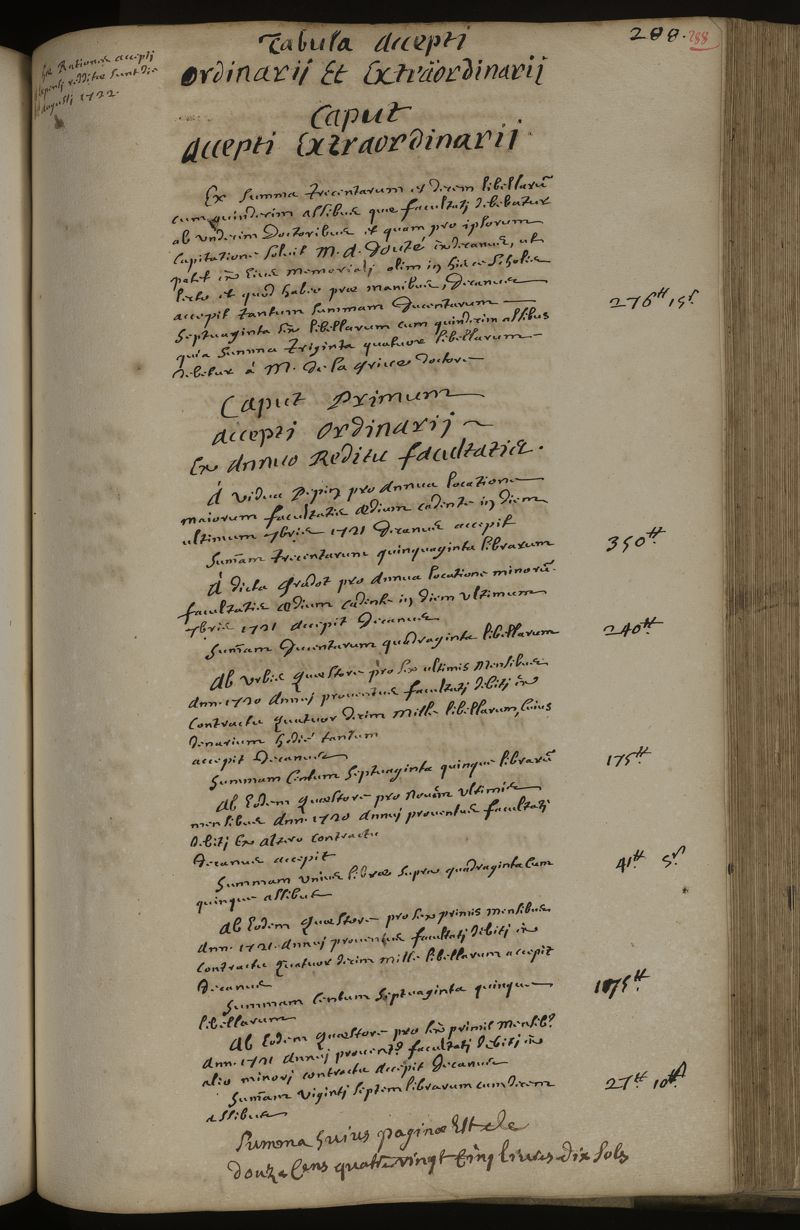 288. 288
Tabula accepti
Ordinarij Et Extraordinarij
hæ Rationes accepti
expensi redditæ sunt die
augusti 1722.
Caput
accepti Extraordinarij
Ex summa trecentarum et decem libellarū
cum quindecim assibus quæ facultati debebatur
ab undecim Doctoribus et quam pro ipsorum
Capitatione soluit M. d. Douté exdecanus, ut
patet in eius memoriali olim in hisce scholis
lecto et quod habeo præ manibus, Decanus
accepit tantum summam ducentarum
septuaginta sex libellarum cum quindecim assibus 276tt 15s
quia summa triginta quatuor libellarum
debetur à M. De la grive doctore
Caput Primum
accepti Ordinarij
Ex annuo Reditu facultatis.
à vidua Pepin pro annua locatione
maiorum facultatis ædium cadente in diem
ultimum 7bris 1721 Decanus accepit
Sum̄am trecentarum quinquaginta librarum 350tt
à dicta Gradot pro annua locatione minorū
facultatis ædium cadente in diem ultimum
7bris 1721 accepit Decanus
Sum̄am ducentarum quadraginta libellarum 240tt
ab urbis quæstore pro sex ultimis mensibus
ann. 1720 annui proventus facultati debiti in
contractu quatuor decim mille libellarum, cuius
denarium hodie tantum
accepit Decanus
Summam Centum septuaginta quinque librarū 175tt
ab Eodem quæstore pro novem ultimis
mensibus ann. 1720 annui proventus facultati
debiti Ex altero contractu
Decanus accepit
Summam unius libræ supra quadraginta cum 41tt 5s
quinque assibus
ab Eodem quæstore pro sex primis mensibus
ann. 1721. annui proventus facultati debiti in
contractu quatuor decim mille libellarum accepit
Decanus
Summam Centum septuaginta quinque 175tt
libellarum
ab Eodem quæstore pro sex primis mensib?
ann. 1721 annui provent? facultati debiti in
alio minori contractu accepit Decanus
Sum̄am viginti septem librarum cum decem 27tt 10s
assibus
Summa huius paginæ Est de
douze Cens quatre vingt Cinq livres dix sols